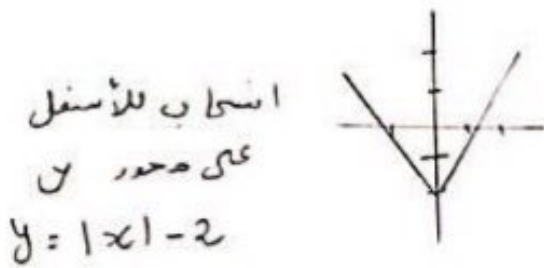 انسحاب للأسفل
على محور y
y = |x| - 2